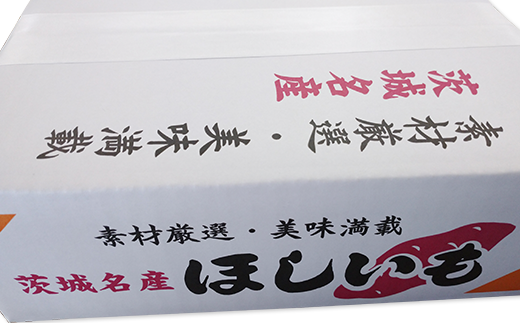 茨城名産
素材厳選・美味満載
素材厳選・美味満載
茨城名産 ほしいも